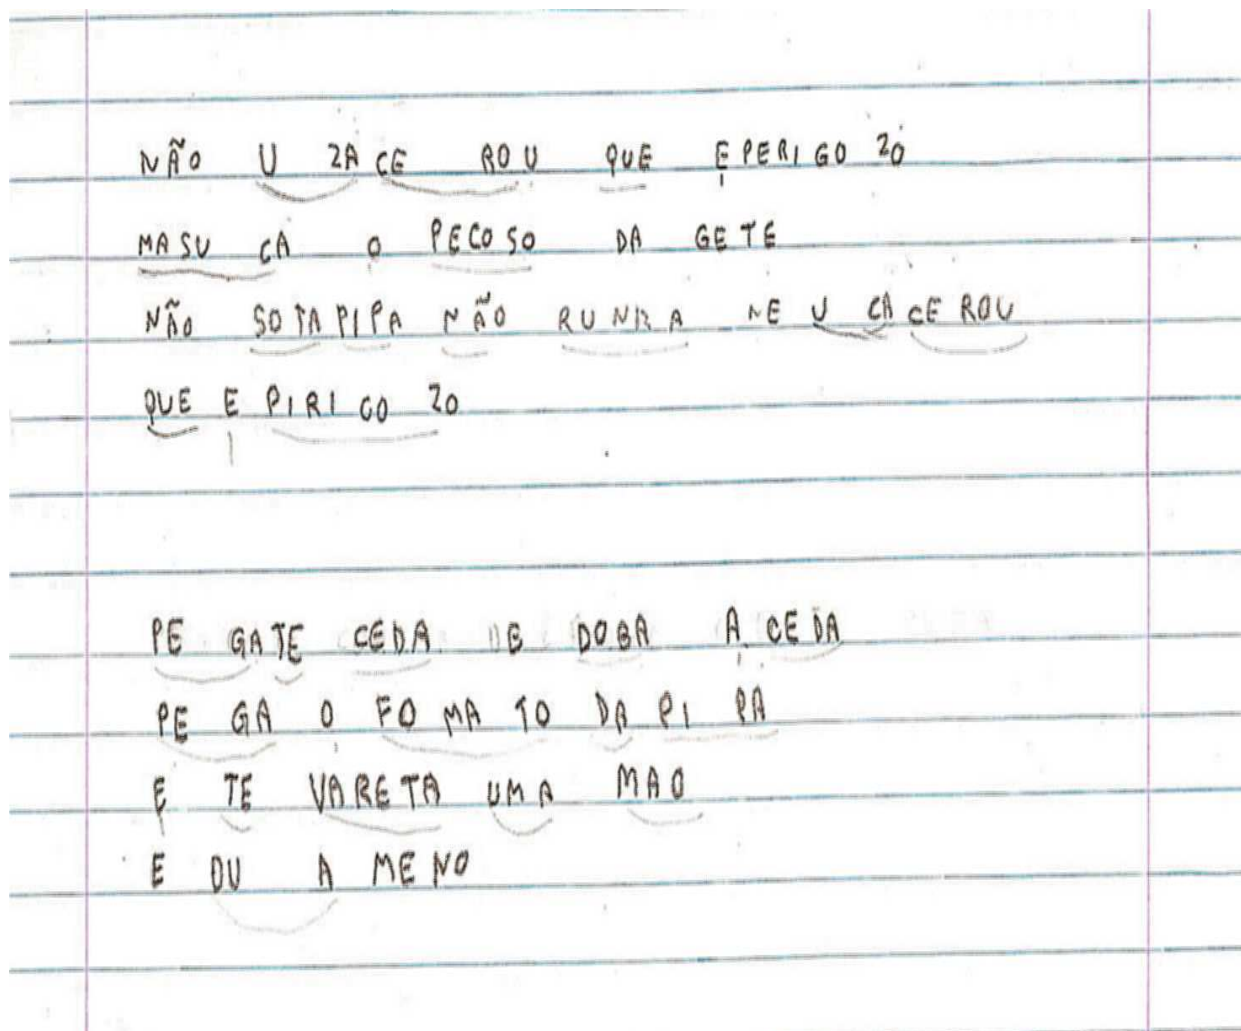 NÃO U ZA CE ROU QUE E PERI GO ZO
MASU CA O PECOSO DA GETE
NÃO SOTA PIPA NÃO NE U CA CE ROU
QUE E PIRI GO ZO
PE GA TE CEDA DE DOBA A CEDA
PE GA O FO MA TO DA PI PA
E TE VARETA UMA MAO
E DU A MENO